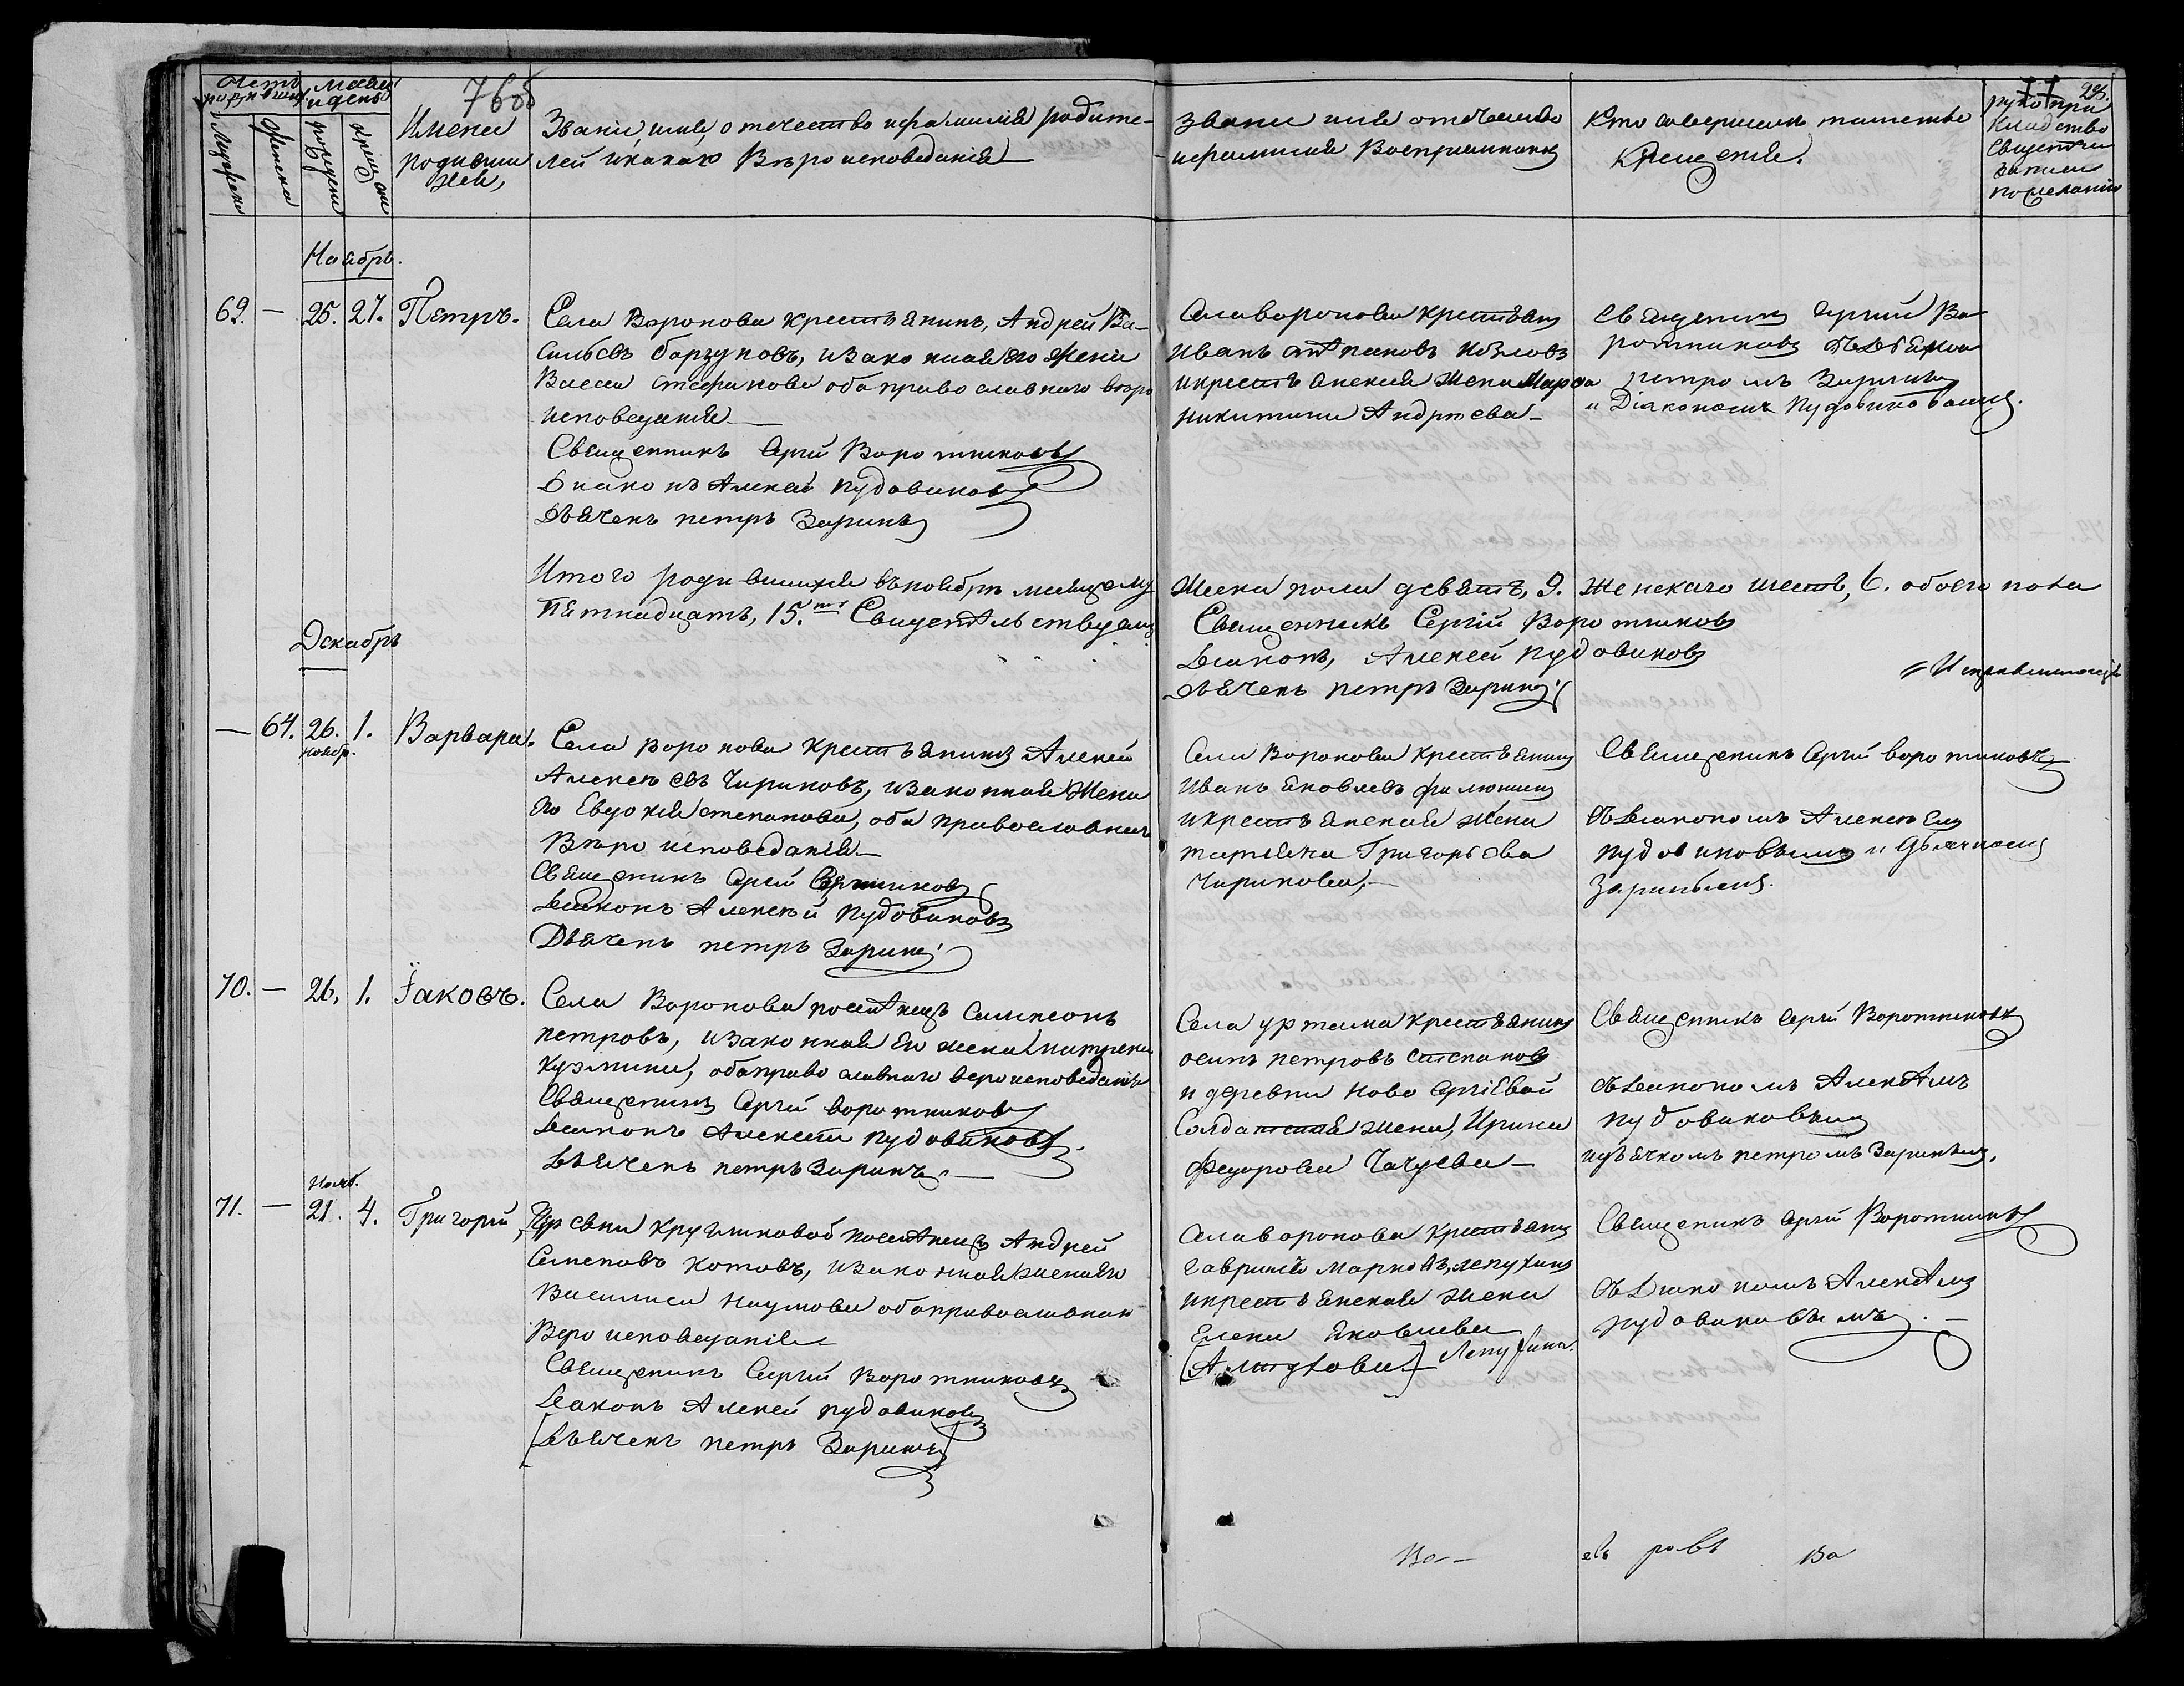 7605
28.
Счетъ родившихся
Мѣсяцъ и день
Мужеска
Женска
рожденія
крещенія
Имена родившихся,
Званіе, имя, отечество и фамилія родите-
лей и какого Вѣроисповеданія
Званіе имя отечество
и фамилія Воспріемниковъ
Кто совершалъ таинство
Крещенія.
руко при
кладство
свидетелей
записи
по желанію
Ноябрь.
69. — 25. 27. Петръ.
Села Воронова крестьянинъ, Андрей Ва-
сильевъ, изаконная его жена
обаправославнаго вѣро
исповеданія
Священникъ Сергій Воротниковъ
Диаконъ Алексей Пудовиковъ
Дьячекъ петръ Заринъ
Села воронова крестьянинъ
Иванъ
икрестьянская жена Марфа
никитина Андреева
Священникъ Сергій Во
ротниковъ
петромъ Заринымъ
и Діакономъ Пудовиковымъ.
Итого родившихся въноябрѣ месяце му
Пятнадцать, 15. Свидетельствуемъ
жска пола девять, 9. Женскаго шесть, 6. обоего пола
Священникъ Сергій Воротниковъ
Диаконъ, Алексей Пудовиковъ
Дьячекъ петръ Заринъ
Декабрь
— 64. 26. 1. Варвара.
ноябр.
Села воронова крестьянинъ Алексей
Алексеевъ Чириковъ, изаконная жена
его Евдокія степанова, оба православнаго
Вѣро исповеданія
Священикъ Сергій Воротниковъ
Диаконъ Алексѣй Пудовиковъ
Дьячекъ петръ Заринъ
Села Воронова крестьянинъ
Иванъ Яковлевъ филюшинъ
икрестьянская жена
татьяна Григорьева
Чирикова,
Священикъ Сергій воротниковъ
съдиакономъ Алексеемъ
пудовиковымъ и дьячкомъ
Зариным.
70. — 26. 1. Іаковъ.
Села Воронова поселянецъ Симеонъ
петровъ, изаконная Его жена
Кузмина, обаправославнаго вероисповеданія
Священикъ Сергій воротниковъ
Диаконъ Алексей пудовиковъ
Дьячекъ петръ Заринъ.
Села уртама крестьянинъ
осипъ петровъ степановъ
и деревни Ново Сергіевой
Солдатская жена, Ирина
федорова Чачуева
Священникъ Сергій Воротниковъ
съдиакономъ Алексеемъ
пудовиковымъ
идьячкомъ петромъ Заринымъ.
Нояб.
71. — 21. 4. Григорій,
Деревни кругликовой поселянецъ Андрей
Семеновъ Котовъ, изаконная жена его
Василиса Наумова обаправославнаго
Вероисповеданія
Священикъ Сергій Воротниковъ
Диаконъ Алексей пудовиковъ
Дьячекъ петръ Заринъ
Села воронова крестьянинъ
гаврилъ Марковъ, лепухинъ
икрестьянская жена
Елена Яковлева
Лепухина.
Священикъ Сергій Воротниковъ
съдиакономъ Алексеемъ
пудовиковымъ.